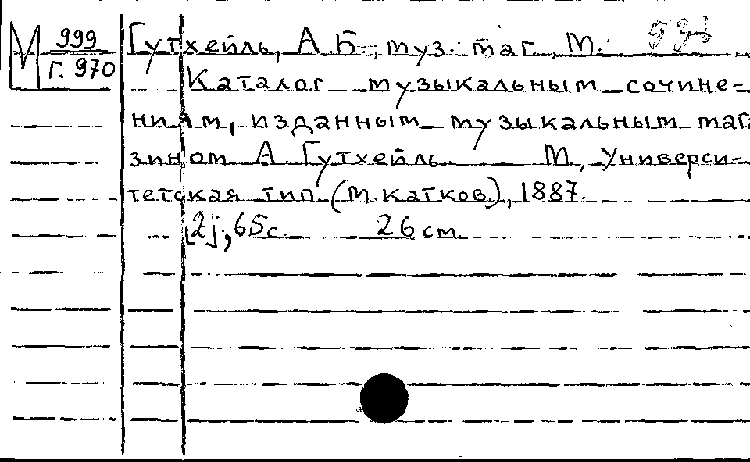 М 999 Гутхейль, А. Б., муз. маг., М.
Г. 970 Каталог музыкальным сочине=
ниям, изданным музыкальным мага
зином А Гутхейль М, Универси=
тетская тип (М. Катков.), 1887.
[2], 65 с. 26 cm.